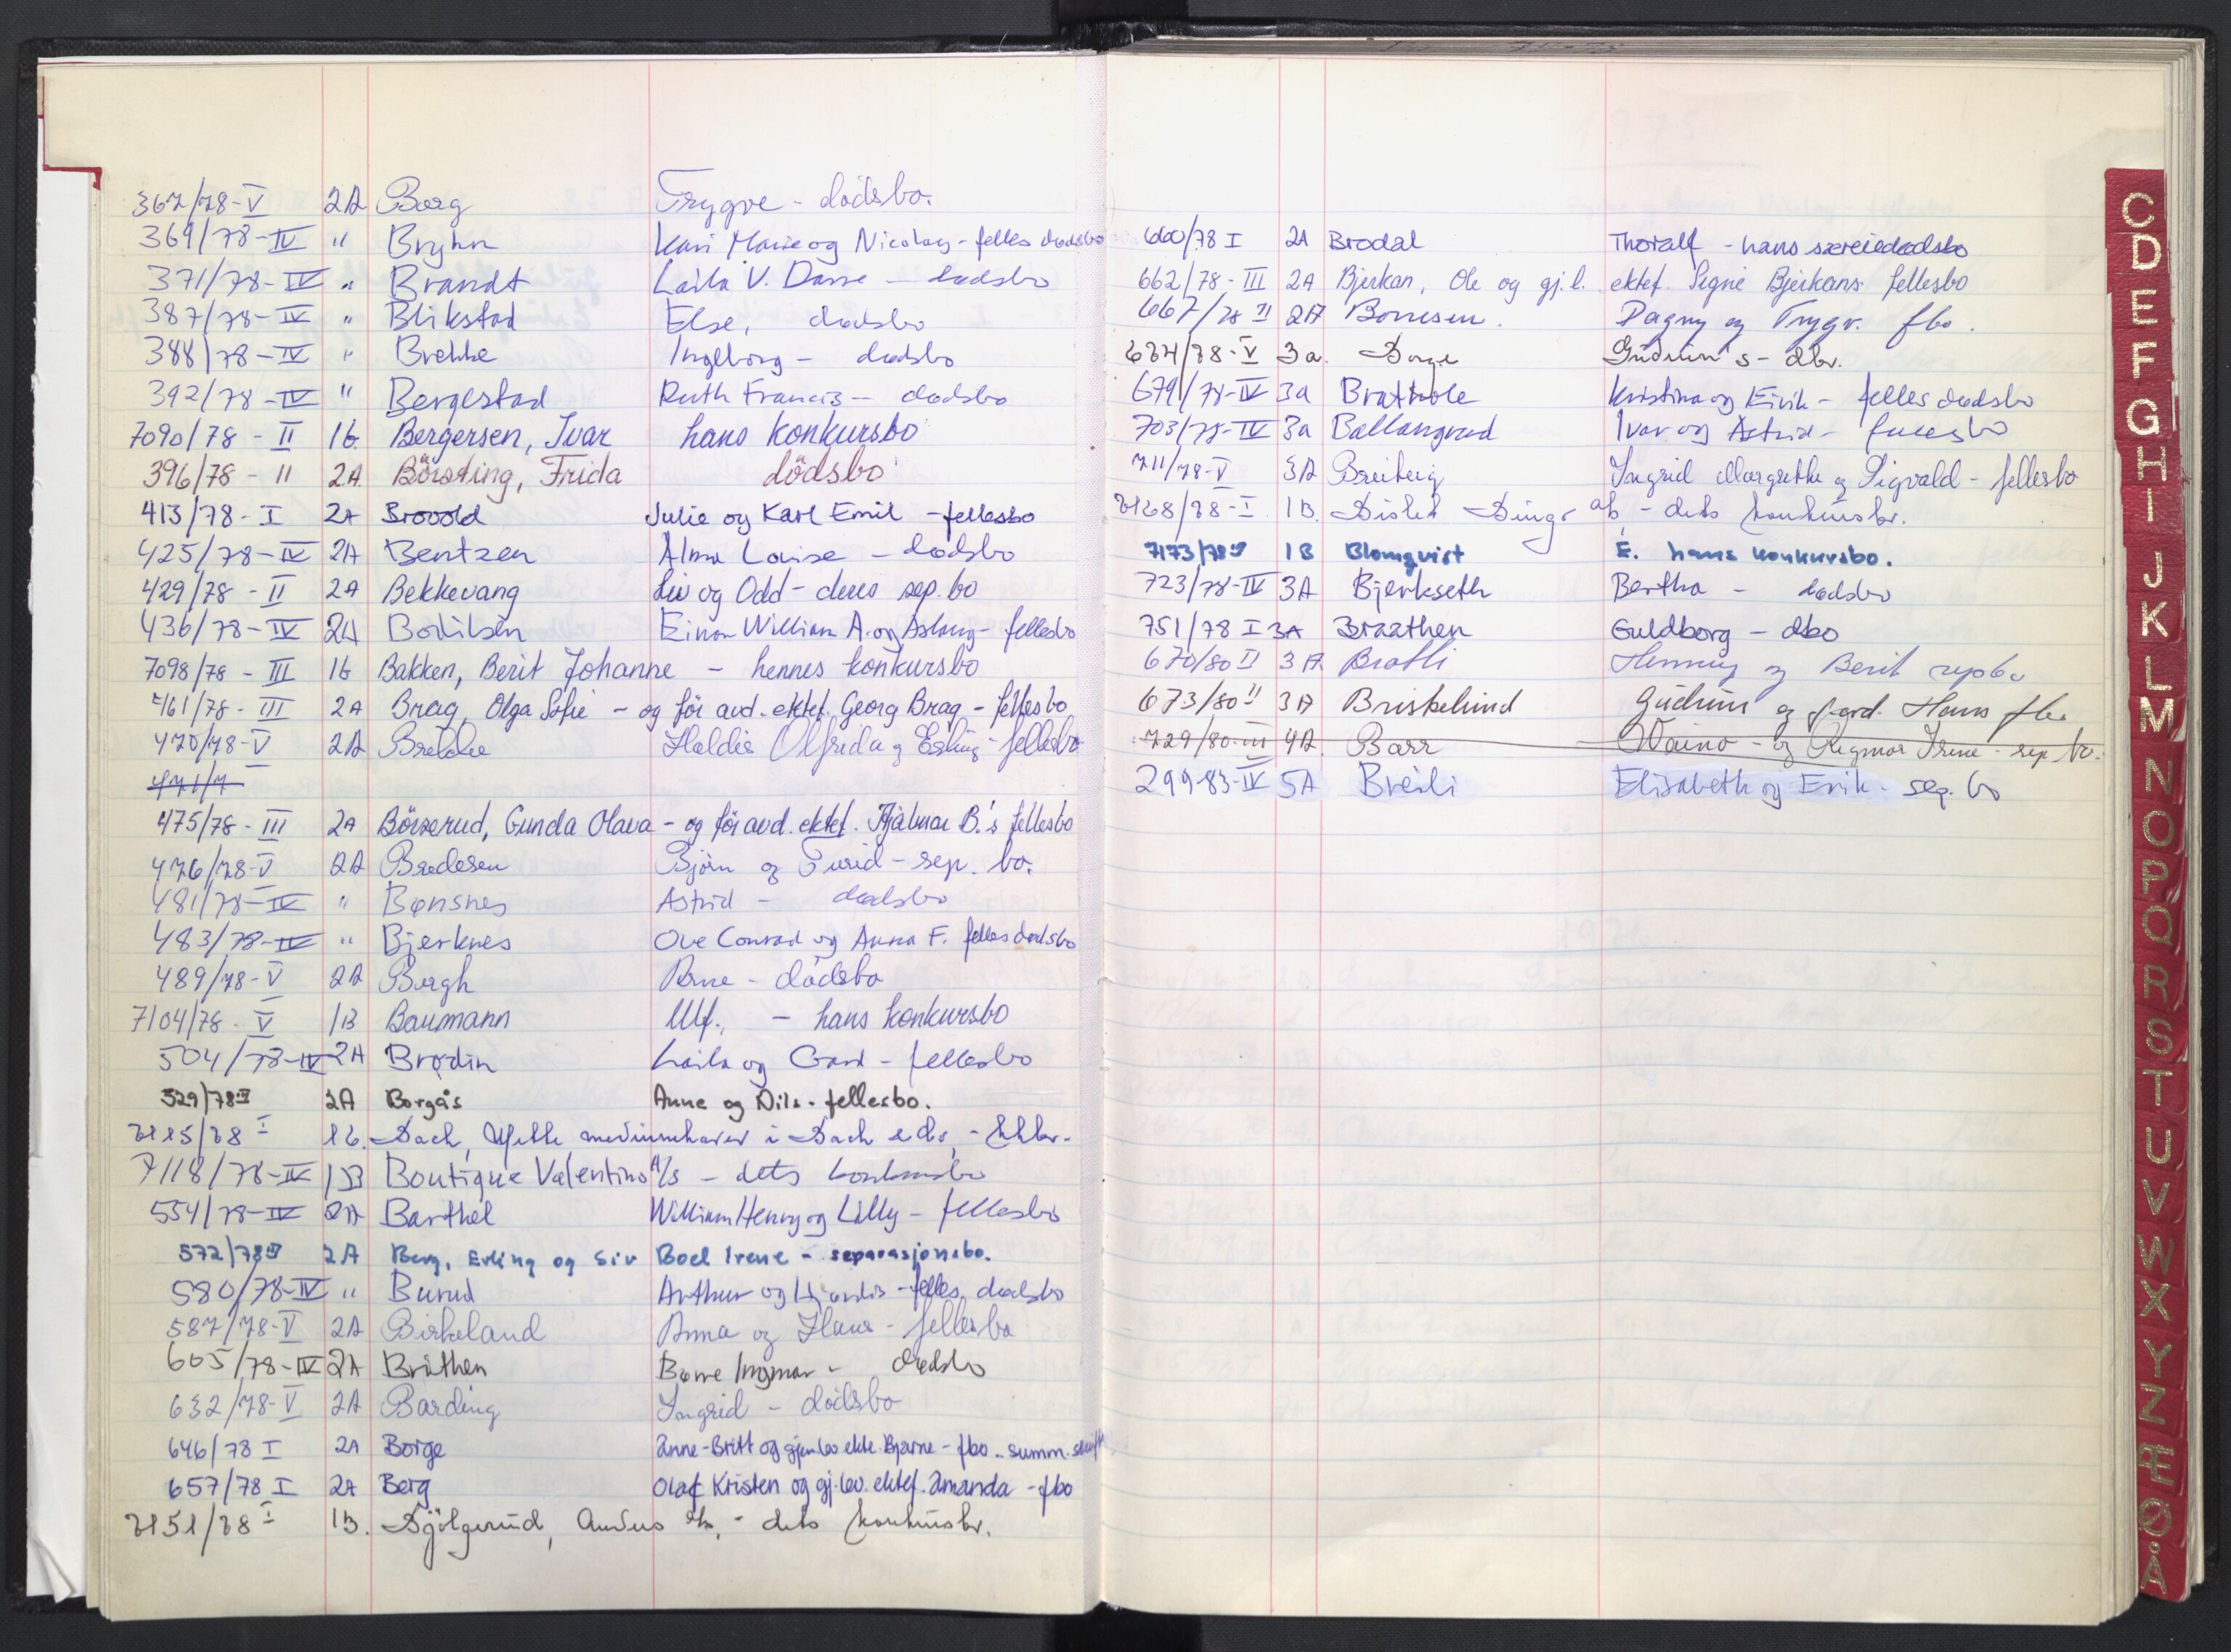 367/78-V 2A Borg Trygve - dödsbo.
369/78-IV " Bryhn Kari Marie og Nicolay - felles dødsbo
371/78-IV " Brandt Laila V. Dasse - dødsbo
387/78-IV " Blikstad Else, dødsbo
388/78-IV " Brekke Ingeborg - dødsbo
392/78-IV " Bergestad Ruth Francis - dødsbo
7090/78 - II 1b Bergersen, Ivar hans konkursbo
396/78 - II 2A Börsting, Frida dödsbo
413/78 - I 2A Brovold Julie og Karl Emil - fellesbo
425/78-IV 2A Bentzen Alma Louise - dødsbo
429/78 - II 2A Bekkevang Liv og Odd - deres sep. bo
436/78-IV 2A Bodilsen Einar William A. og Aslaug - fellesbo
7098/78 - III 1b Bakken, Berit Johanne - hennes konkursbo
461/78 - III 2A Brag, Olga Sofie - og før avd. ektef. Georg Brag - fellesbo
470/78-V 2A Brekke Haldis Olfrida og Erling - fellesbo
471/7
475/78 - III 2A Börserud, Gunda Olava - og før avd. ektef. Hjalmar B.'s fellesbo
476/78-V 2A Bredesen Bjørn og Turid - sep. bo.
481/78-IV " Bonsnes Astrid - dødsbo
483/78-IV " Bjerknes Ove Conrad og Anna F. felles dødsbo
489/78-V 2A Bergh Arne - dödsbo
7104/78 - V 1B Baumann Ulf., - hans konkursbo
504/78-IV 2A Brodin Laila og Gard - fellesbo
529/78 IV 2A Borgås Anne og Nils - fellesbo.
7115/78 I 1b. Bach, Mette medinnehaver i Bach & Co, - kkbo.
7118/78-IV 1B Boutique Valentino A/S - dets konkursbo
554/78-IV 2A Barthel William Henry og Lilly - fellesbo
572/78 IV 2A Berg, Erling og Siv Boel Irene - separasjonsbo.
580/78-IV " Burud Arthur og Hjørdis - felles dødsbo
587/78-V 2A Birkeland Anna og Hans - fellesbo
605/78-IV 2A Bråthen Børre Ingmar - dødsbo
632/78-V 2A Barding Ingrid - dödsbo
646/78 I 2A Borge Anne-Britt og gjenlev ekte. Bjarne - fbo - summ. skifte
657/78 I 2A Berg Olaf Kristen og gj.lev. ektef. Amanda - fbo
7151/78 I 1B. Bjølgerud, Anders A/S, - dets konkursbo.
660/78 I 2A Brodal Thoralf - hans særeiedødsbo
662/78 - III 2A Bjerkan, Ole og gj.l. ektef. Signe Bjerkans fellesbo
667/78 II 2A Borresen. Dagny og Trygv. fbo.
674/78-V 3a. Borge Gudrun's - dbo.
679/78-IV 3a Brathole Kristina og Eirik - felles dødsbo
703/78-IV 3a Ballangrud Ivar og Astrid - fellesbo
711/78-V 3A Breiteig Ingrid Margrethe og Sigvald - fellesbo
7168/78-I 1B. Bislet Bingo A/S - dets konkursbo.
7173/78 IV 1B Blomqvist E. hans konkursbo.
723/78-IV 3A Bjerkseth Bertha - dødsbo
751/78 I 3A Braathen Guldborg - dbo
670/80 II 3A Bratli Henning og Berit sepbo
673/80 II 3A Briskelund Gudrun og ford. Hans fbo
729/80-III 4A. Barr Waino - og Ragmor Irene - sep. bo.
299-83-IV 5A Breili Elisabeth og Erik - sep. bo
C
D
E
F
G
H
I
J
K
L
M
N
O
P
Q
R
S
T
U
V
W
X
Y
Z
Æ
Ø
Å